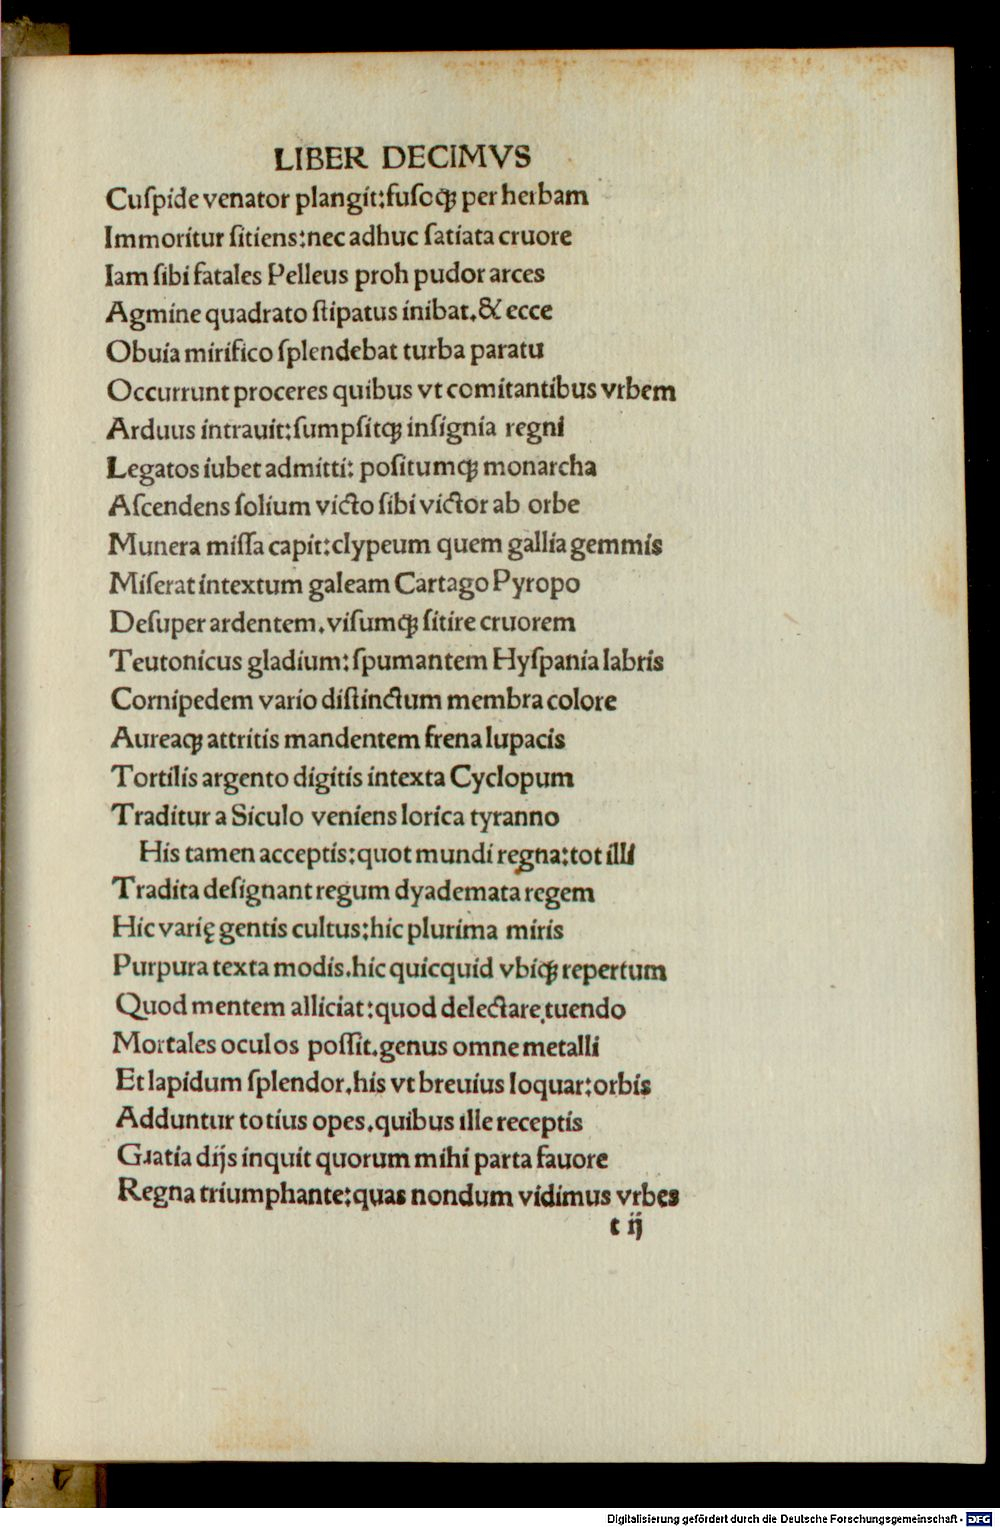 LIBER DECIMVS
Cuſpide venator plangit:fuſoqꝫ per herbam
Immoritur ſitiens:nec adhuc ſatiata cruore
Iam ſibi fatales Pelleus proh pudor arces
Agmine quadrato ſtipatus inibat.& ecce
Obuia mirifico ſplendebat turba paratu
Occurrunt proceres quibus vt comitantibus vrbem
Arduus intrauit:ſumpſitqꝫ inſignia regni
Legatos iubet admitti: poſitumqꝫ monarcha
Aſcendens ſolium victo ſibi victor ab orbe
Munera miſſa capit:clypeum quem gallia gemmis
Miſerat intextum galeam Cartago Pyropo
Deſuper ardentem.viſumqꝫ ſitire cruorem
Teutonicus gladium:ſpumantem Hyſpania labris
Cornipedem vario diſtinctum membra colore
Aureaqꝫ attritis mandentem frena lupacis
Tortilis argento digitis intexta Cyclopum
Traditur a Siculo veniens lorica tyranno
His tamen acceptis:quot mundi regna:tot illi
Tradita deſignant regum dyademata regem
Hic varię gentis cultus:hic plurima miris
Purpura texta modis.hic quicquid vbiqꝫ repertum
Quod mentem alliciat:quod delectare tuendo
Mortales oculos poſſit.genus omne metalli
Et lapidum ſplendor.his vt breuius loquar:orbis
Adduntur totius opes.quibus ille receptis
Gratia dijs inquit quorum mihi parta fauore
Regna triumphante:quas nondum vidimus vrbes
t ij
Digitalisierung gefördert durch die Deutsche Forschungsgemeinschaft - DFG